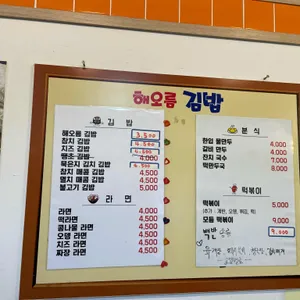 해오름 김밥
김 밥
해오름 김밥 3.500
참치 김밥 4.500
치즈 김밥 4.500
땡초 김밥 4.000
묵은지 김치 김밥 4.500
참치 매콤 김밥 4.500
멸치 매콤 김밥 4.500
불고기 김밥 5.000
라면
라면 4.000
떡라면 4.500
콩나물 라면 4.500
오뎅 라면 4.500
치즈 라면 4.500
짜장 라면 4.500
분 식
한입 물만두 4.000
김비 만두 4.000
잔치 국수 7.000
떡만두국 8.000
떡볶이
떡볶이 5.000
모듬 떡볶이 9.000
백반 9.000